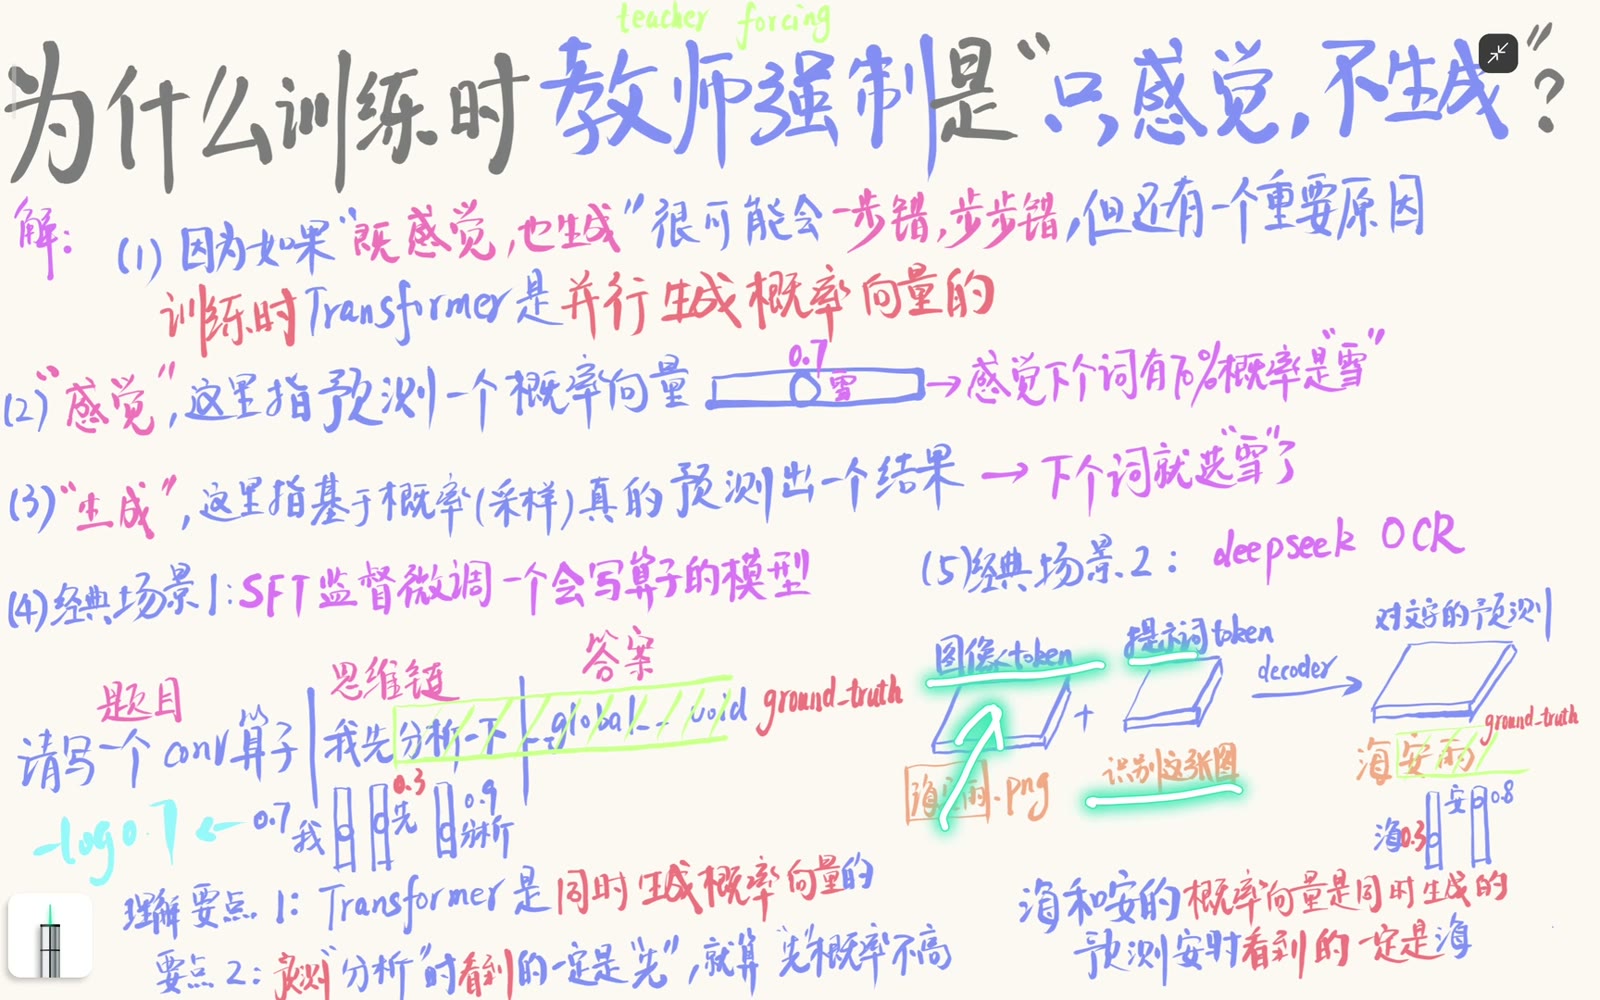 teacher forcing
为什么训练时教师强制是“只感觉,不生成”?
解:
(1) 因为如果“既感觉,也生成”很可能会一步错,步步错,但还有一个重要原因
训练时Transformer是并行生成概率向量的
(2)“感觉”,这里指预测一个概率向量 0.7 雪 →感觉下个词有70%概率是“雪”
(3)“生成”,这里指基于概率(采样)真的预测出一个结果 → 下个词就选“雪”了
(4)经典场景1:SFT监督微调一个会写算子的模型
题目 思维链 答案
请写一个conv算子 | 我先分析一下 | __global__ void ground_truth
-log0.7 ← 0.7 我 0.3 先 0.9 分析
理解要点1: Transformer是同时生成概率向量的
要点2: 预测“分析”时看到的一定是“先”,就算“先”概率不高
(5)经典场景2: deepseek OCR
图像token + 提示词token decoder → 对文字的预测
.png 识别这张图 海安雨 ground_truth
海 0.3 安 0.8
海和安的概率向量是同时生成的
预测安时看到的一定是海